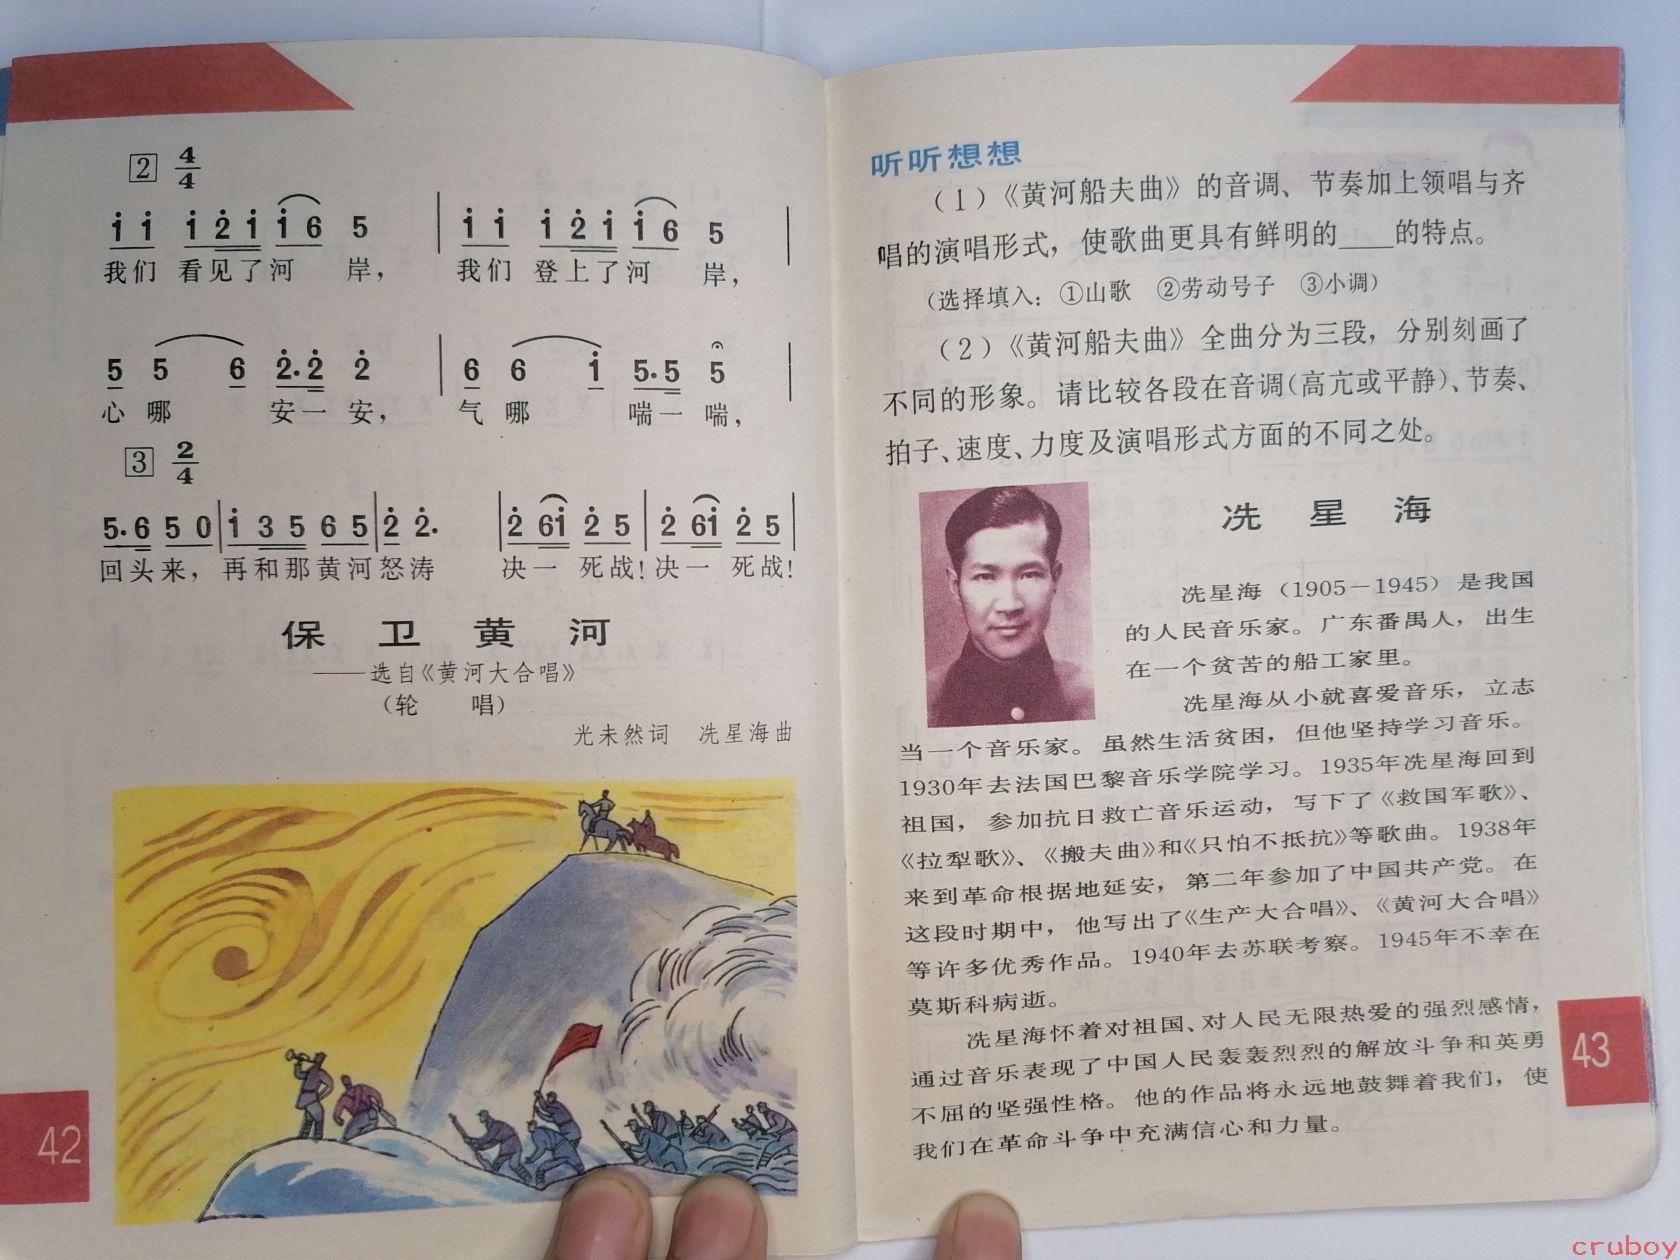 2 4/4
i i i 2 i i 6 5 | i i i 2 i i 6 5 |
我们 看见了河 岸， 我们 登上了河 岸，
5 5 6 2·2 2 | 6 6 i 5·5 5 |
心 哪 安一安， 气 哪 喘一喘，
3 2/4
5·6 5 0 | i 3 5 6 5 | 2 2· | 2 6i 2 5 | 2 6i 2 5 |
回头来，再和那黄河怒涛 决一 死战！决一 死战！
保 卫 黄 河
——选自《黄河大合唱》
（轮 唱）
光未然词 冼星海曲
42
听听想想
（1）《黄河船夫曲》的音调、节奏加上领唱与齐
唱的演唱形式，使歌曲更具有鲜明的____的特点。
（选择填入：①山歌 ②劳动号子 ③小调）
（2）《黄河船夫曲》全曲分为三段，分别刻画了
不同的形象。请比较各段在音调（高亢或平静）、节奏、
拍子、速度、力度及演唱形式方面的不同之处。
冼 星 海
冼星海（1905－1945）是我国
的人民音乐家。广东番禺人，出生
在一个贫苦的船工家里。
冼星海从小就喜爱音乐，立志
当一个音乐家。虽然生活贫困，但他坚持学习音乐。
1930年去法国巴黎音乐学院学习。1935年冼星海回到
祖国，参加抗日救亡音乐运动，写下了《救国军歌》、
《拉犁歌》、《搬夫曲》和《只怕不抵抗》等歌曲。1938年
来到革命根据地延安，第二年参加了中国共产党。在
这段时期中，他写出了《生产大合唱》、《黄河大合唱》
等许多优秀作品。1940年去苏联考察。1945年不幸在
莫斯科病逝。
冼星海怀着对祖国、对人民无限热爱的强烈感情，
通过音乐表现了中国人民轰轰烈烈的解放斗争和英勇
不屈的坚强性格。他的作品将永远地鼓舞着我们，使
我们在革命斗争中充满信心和力量。
43
cruboy